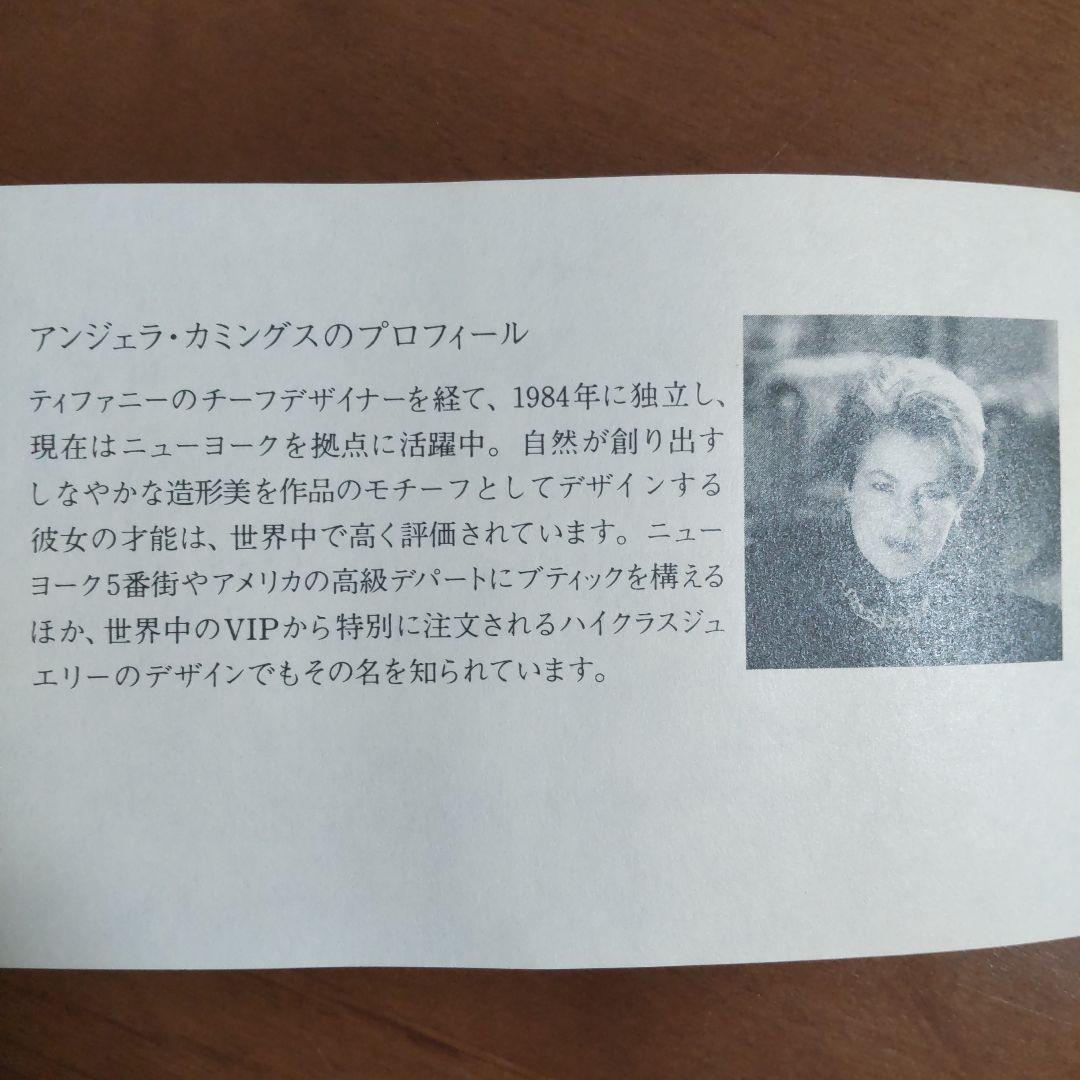 アンジェラ・カミングスのプロフィール
ティファニーのチーフデザイナーを経て、1984年に独立し、
現在はニューヨークを拠点に活躍中。自然が創り出す
しなやかな造形美を作品のモチーフとしてデザインする
彼女の才能は、世界中で高く評価されています。ニュー
ヨーク5番街やアメリカの高級デパートにブティックを構える
ほか、世界中のVIPから特別に注文されるハイクラスジュ
エリーのデザインでもその名を知られています。